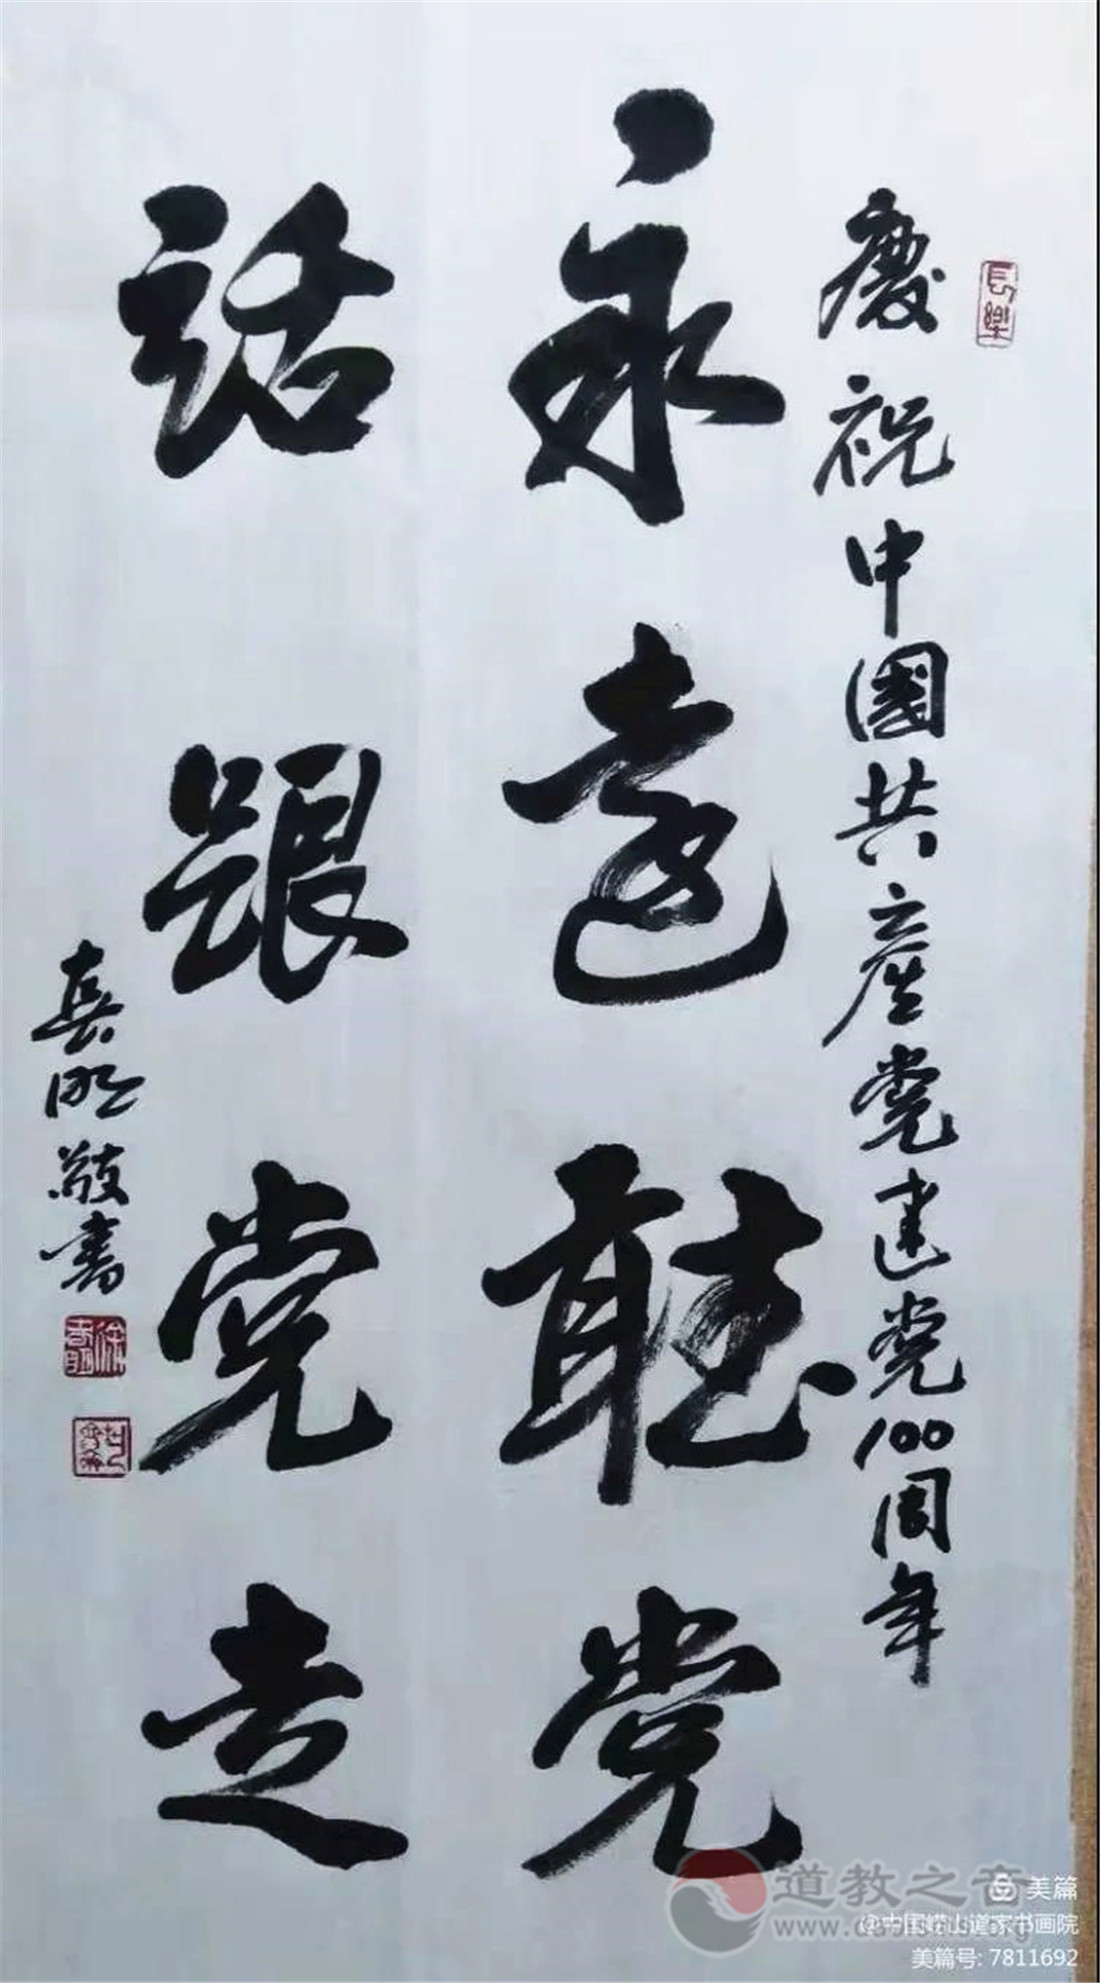 慶祝中國共產党建党100周年
永遠聽党
話跟党走
真明敬書
長樂
道教之音
www.daoisms.org
美篇
@中国崂山道家书画院
美篇号: 7811692